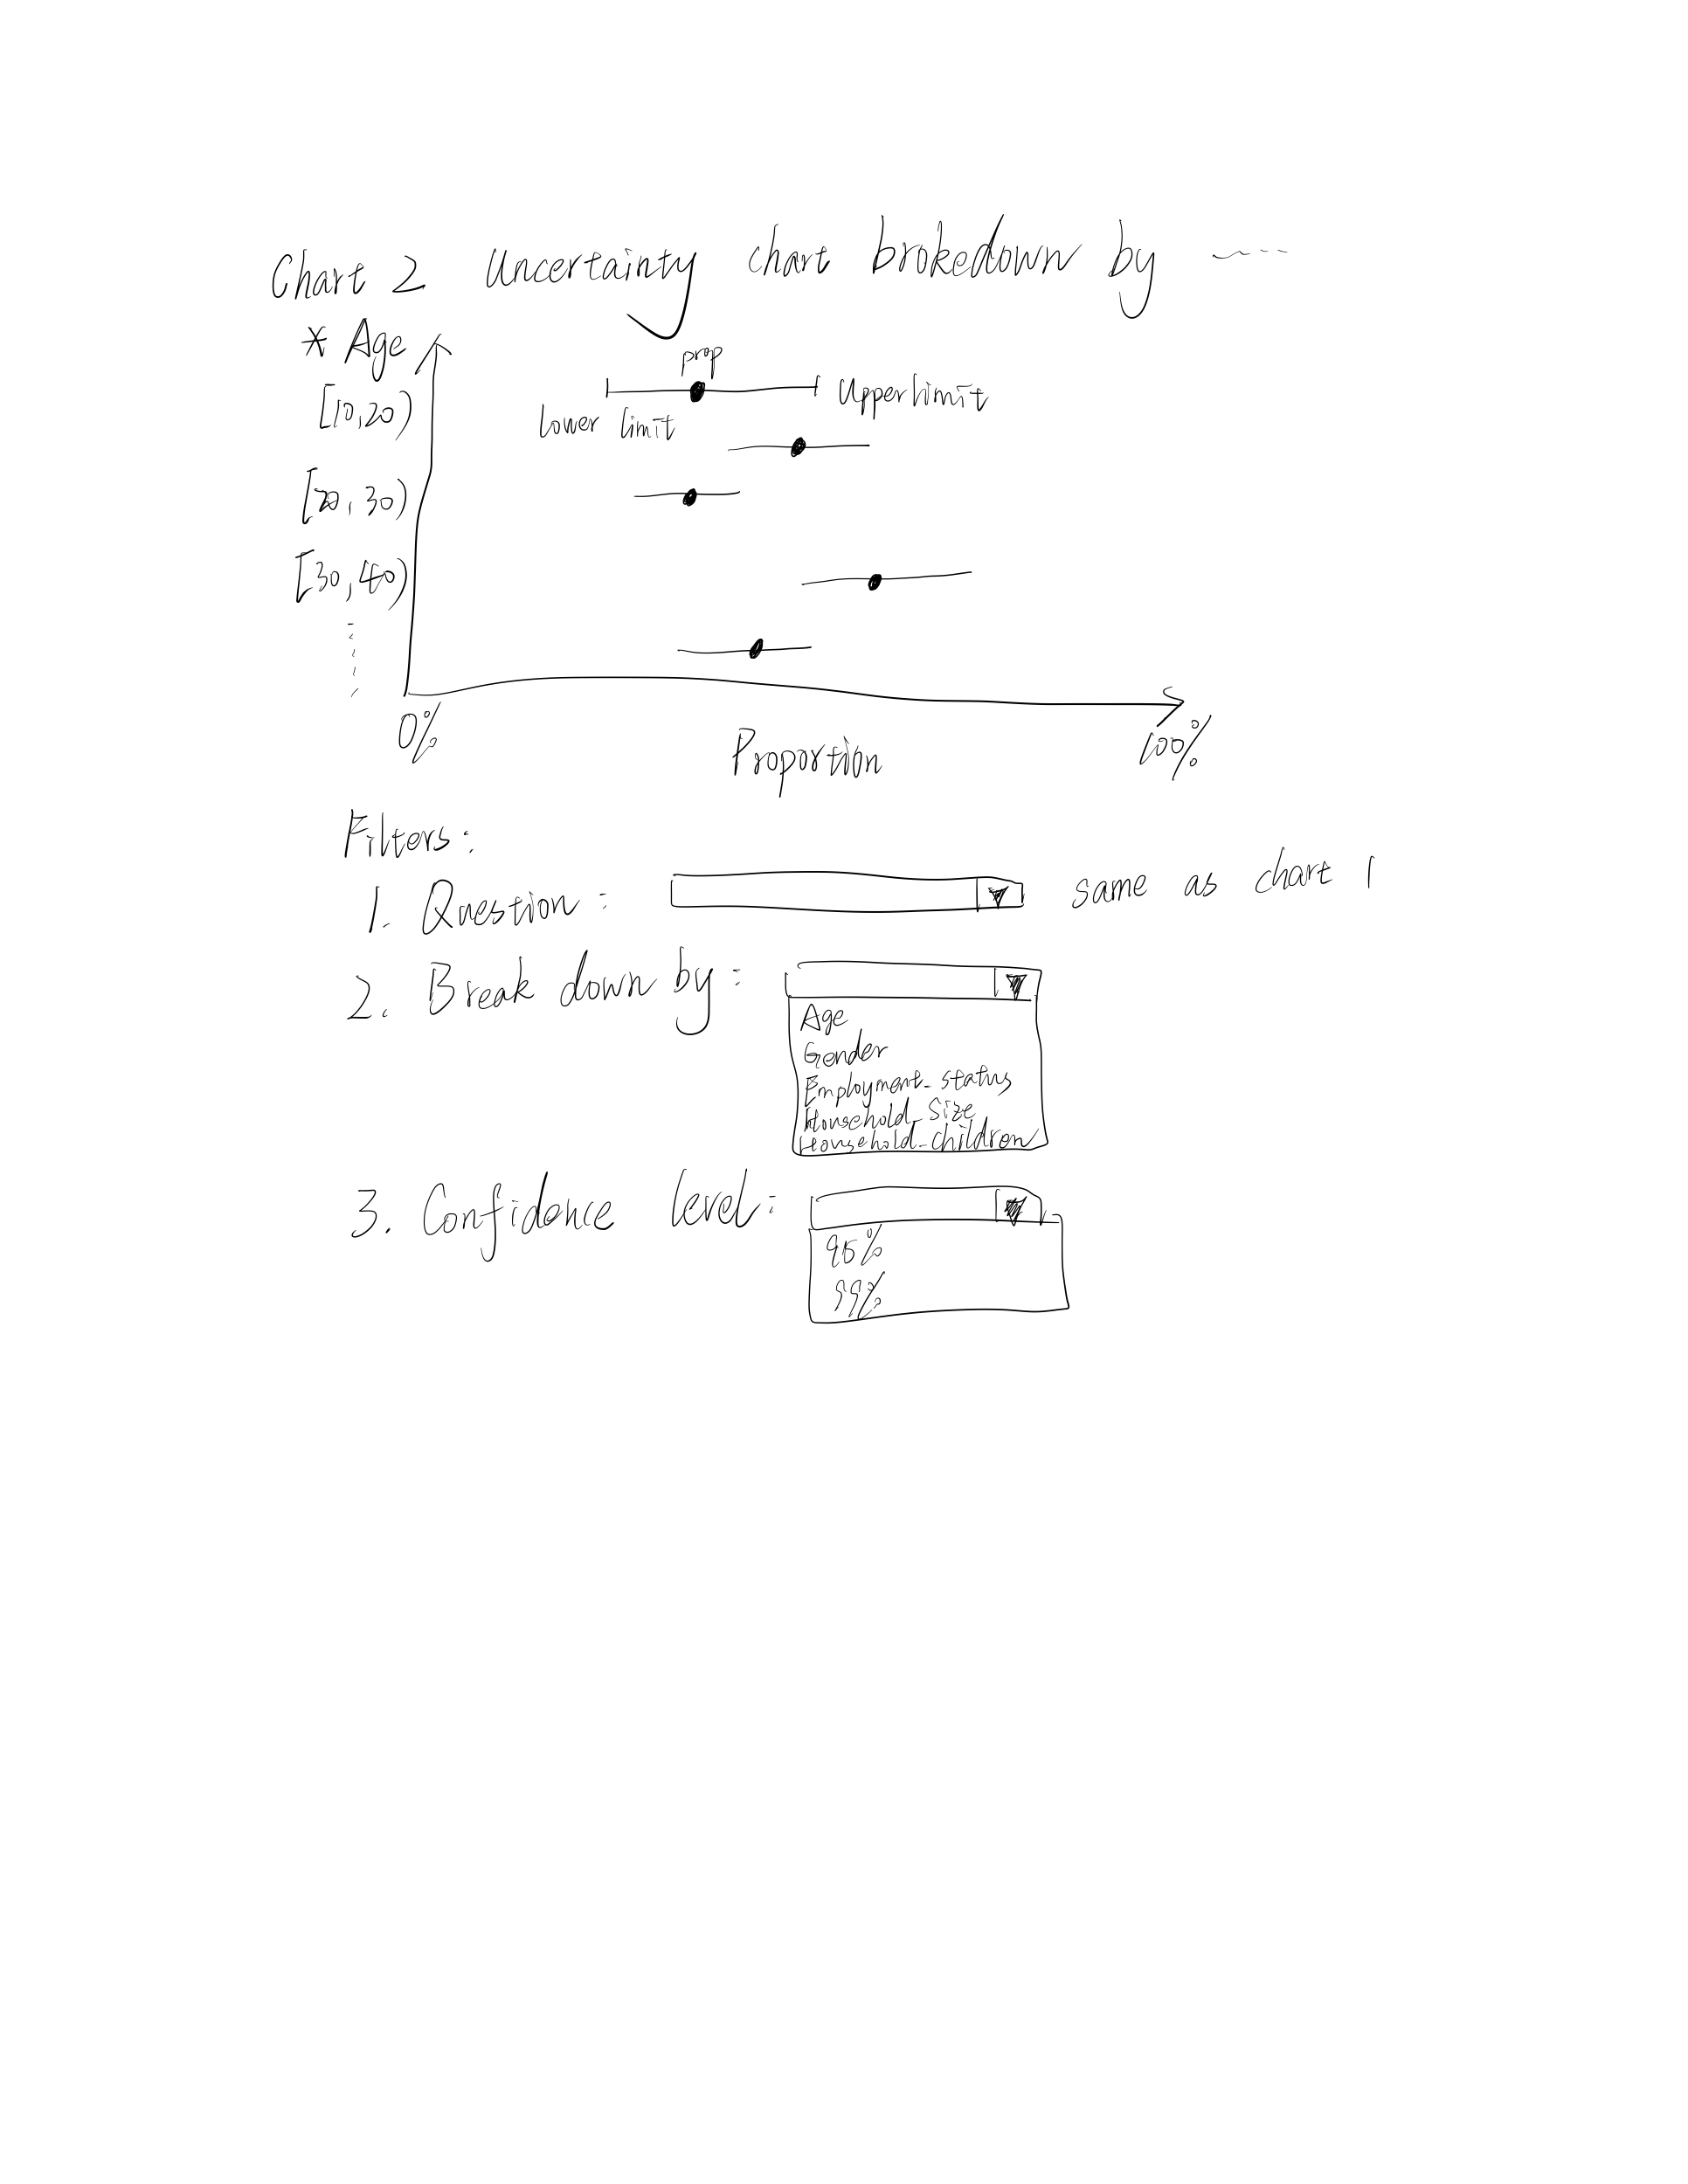 Chart 2 Uncertainty chart brokedown by ----
* Age
prop
[10,20)
Upper limit
lower limit
[20,30)
[30,40)
0%
100%
Proportion
Filters:
1. Question: same as chart 1
2. Break down by:
Age
Gender
Employment_status
Household_Size
Household_children
3. Confidence level:
95%
99%